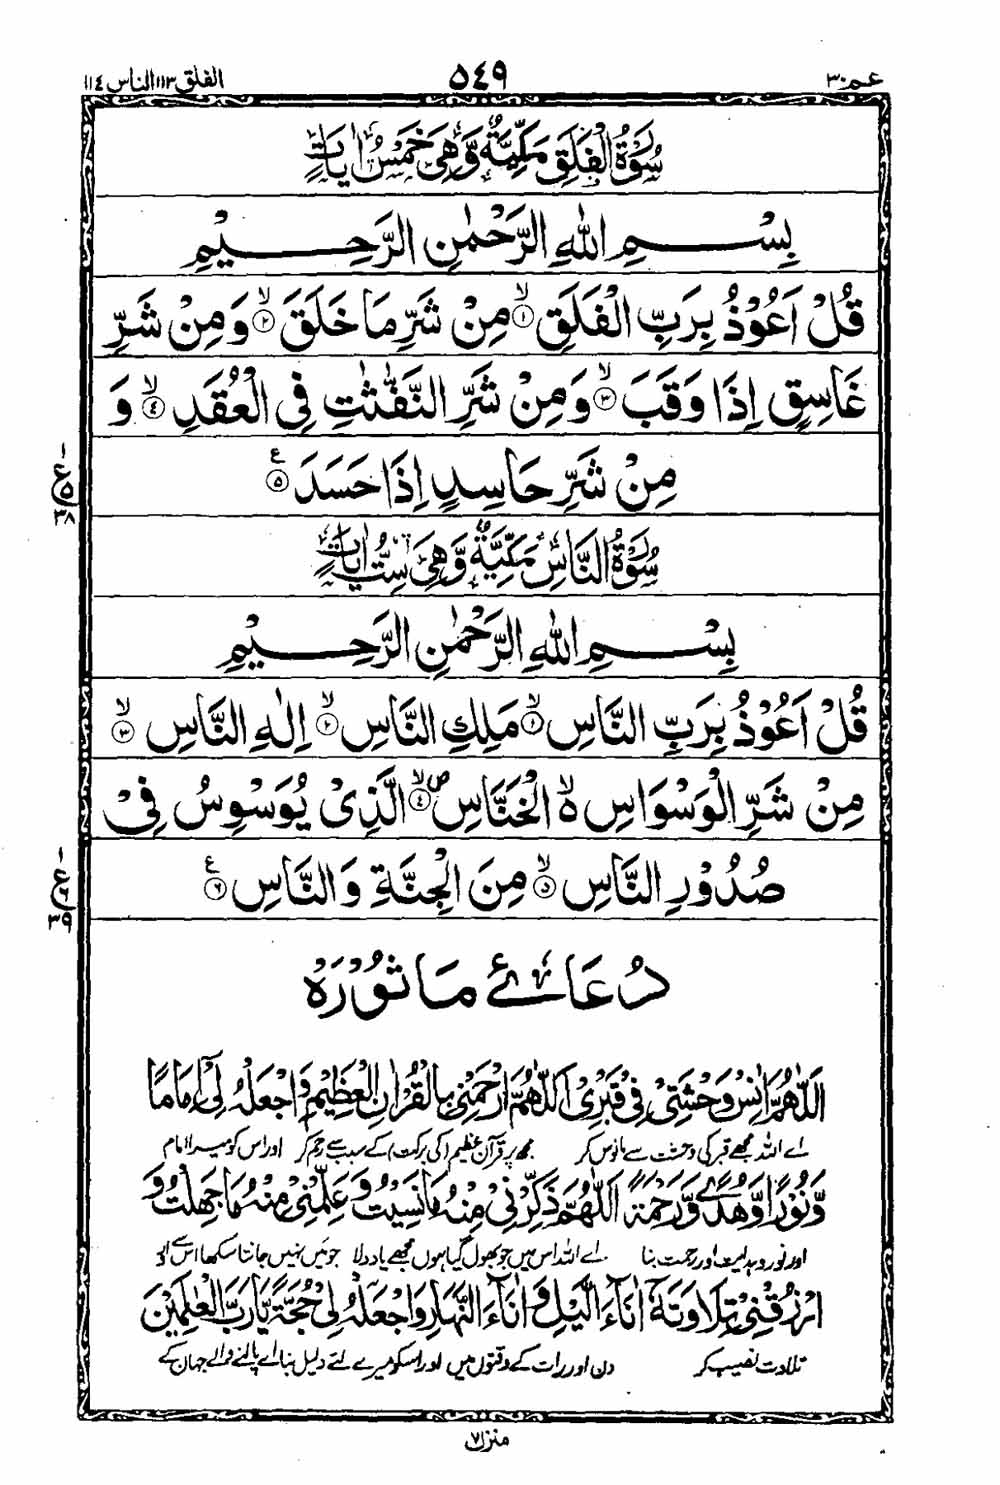 عم ٣٠
٥٤٩
الفلق ١١٣ الناس ١١٤
سُوْرَةُ الْفَلَقِ مَكِّيَّةٌ وَّهِىَ خَمْسُ اٰيَاتٍ
بِسْمِ اللّٰهِ الرَّحْمٰنِ الرَّحِيْمِ
قُلْ اَعُوْذُ بِرَبِّ الْفَلَقِ ۙ﴿١﴾ مِنْ شَرِّ مَا خَلَقَ ۙ﴿٢﴾ وَمِنْ شَرِّ
غَاسِقٍ اِذَا وَقَبَ ۙ﴿٣﴾ وَمِنْ شَرِّ النَّفّٰثٰتِ فِى الْعُقَدِ ۙ﴿٤﴾ وَ
مِنْ شَرِّ حَاسِدٍ اِذَا حَسَدَ ﴿٥﴾ ع
١ ع ٥ ٣٨
سُوْرَةُ النَّاسِ مَكِّيَّةٌ وَّهِىَ سِتُّ اٰيَاتٍ
بِسْمِ اللّٰهِ الرَّحْمٰنِ الرَّحِيْمِ
قُلْ اَعُوْذُ بِرَبِّ النَّاسِ ۙ﴿١﴾ مَلِكِ النَّاسِ ۙ﴿٢﴾ اِلٰهِ النَّاسِ ۙ﴿٣﴾
مِنْ شَرِّ الْوَسْوَاسِ ۙ۵ الْخَنَّاسِ ۙ﴿٤﴾ۖ الَّذِىْ يُوَسْوِسُ فِىْ
صُدُوْرِ النَّاسِ ۙ﴿٥﴾ مِنَ الْجِنَّةِ وَالنَّاسِ ﴿٦﴾ ع
١ ع ٦ ٣٩
دُعَائے مَاثُوْرَہْ
اَللّٰهُمَّ اٰنِسْ وَحْشَتِىْ فِىْ قَبْرِىْ اَللّٰهُمَّ ارْحَمْنِىْ بِالْقُرْاٰنِ الْعَظِيْمِ وَاجْعَلْهُ لِىْ اِمَامًا
اے اللہ مجھے قبر کی وحشت سے مانوس کر مجھ پر قرآن عظیم (کی برکت) کے سبب سے رحم کر اور اس کو میرا امام
وَّنُوْرًا وَّهُدًى وَّرَحْمَةً اَللّٰهُمَّ ذَكِّرْنِىْ مِنْهُ مَا نَسِيْتُ وَعَلِّمْنِىْ مِنْهُ مَا جَهِلْتُ وَ
اور نور و ہدایت اور رحمت بنا اے اللہ اس میں جو بھول گیا ہوں مجھے یاد دلا جو میں نہیں جانتا سکھا اس کی
ارْزُقْنِىْ تِلَاوَتَهٗ اٰنَآءَ الَّيْلِ وَاٰنَآءَ النَّهَارِ وَاجْعَلْهُ لِىْ حُجَّةً يَّا رَبَّ الْعٰلَمِيْنَ
تلاوت نصیب کر دن اور رات کے وقتوں میں اور اسکو میرے لئے دلیل بنا اے پالنے والے جہان کے
منزل ٧